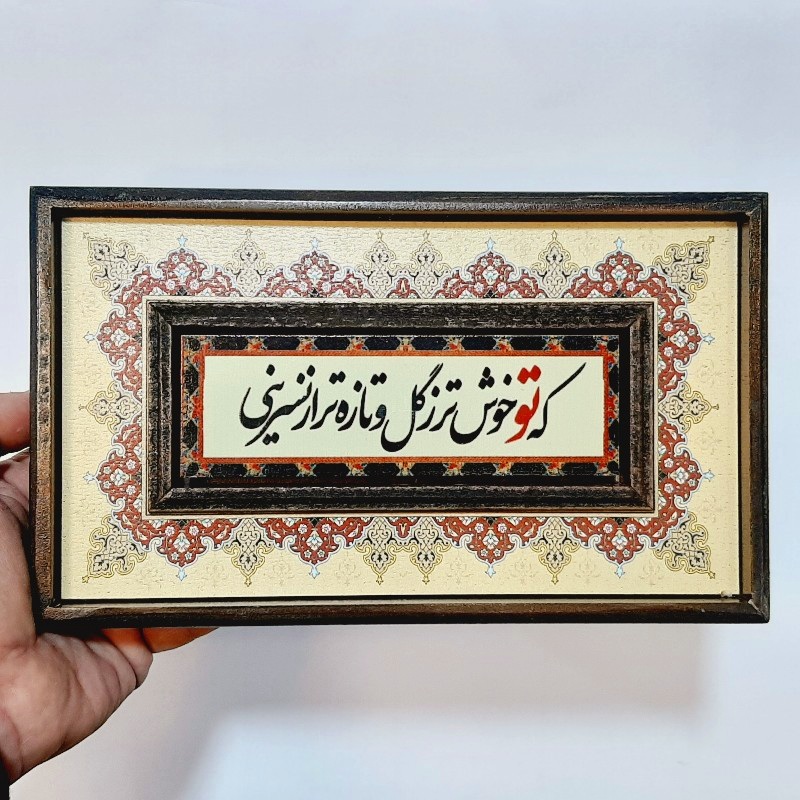 که تو خوش تر ز گل و تازه تر از نسرینی